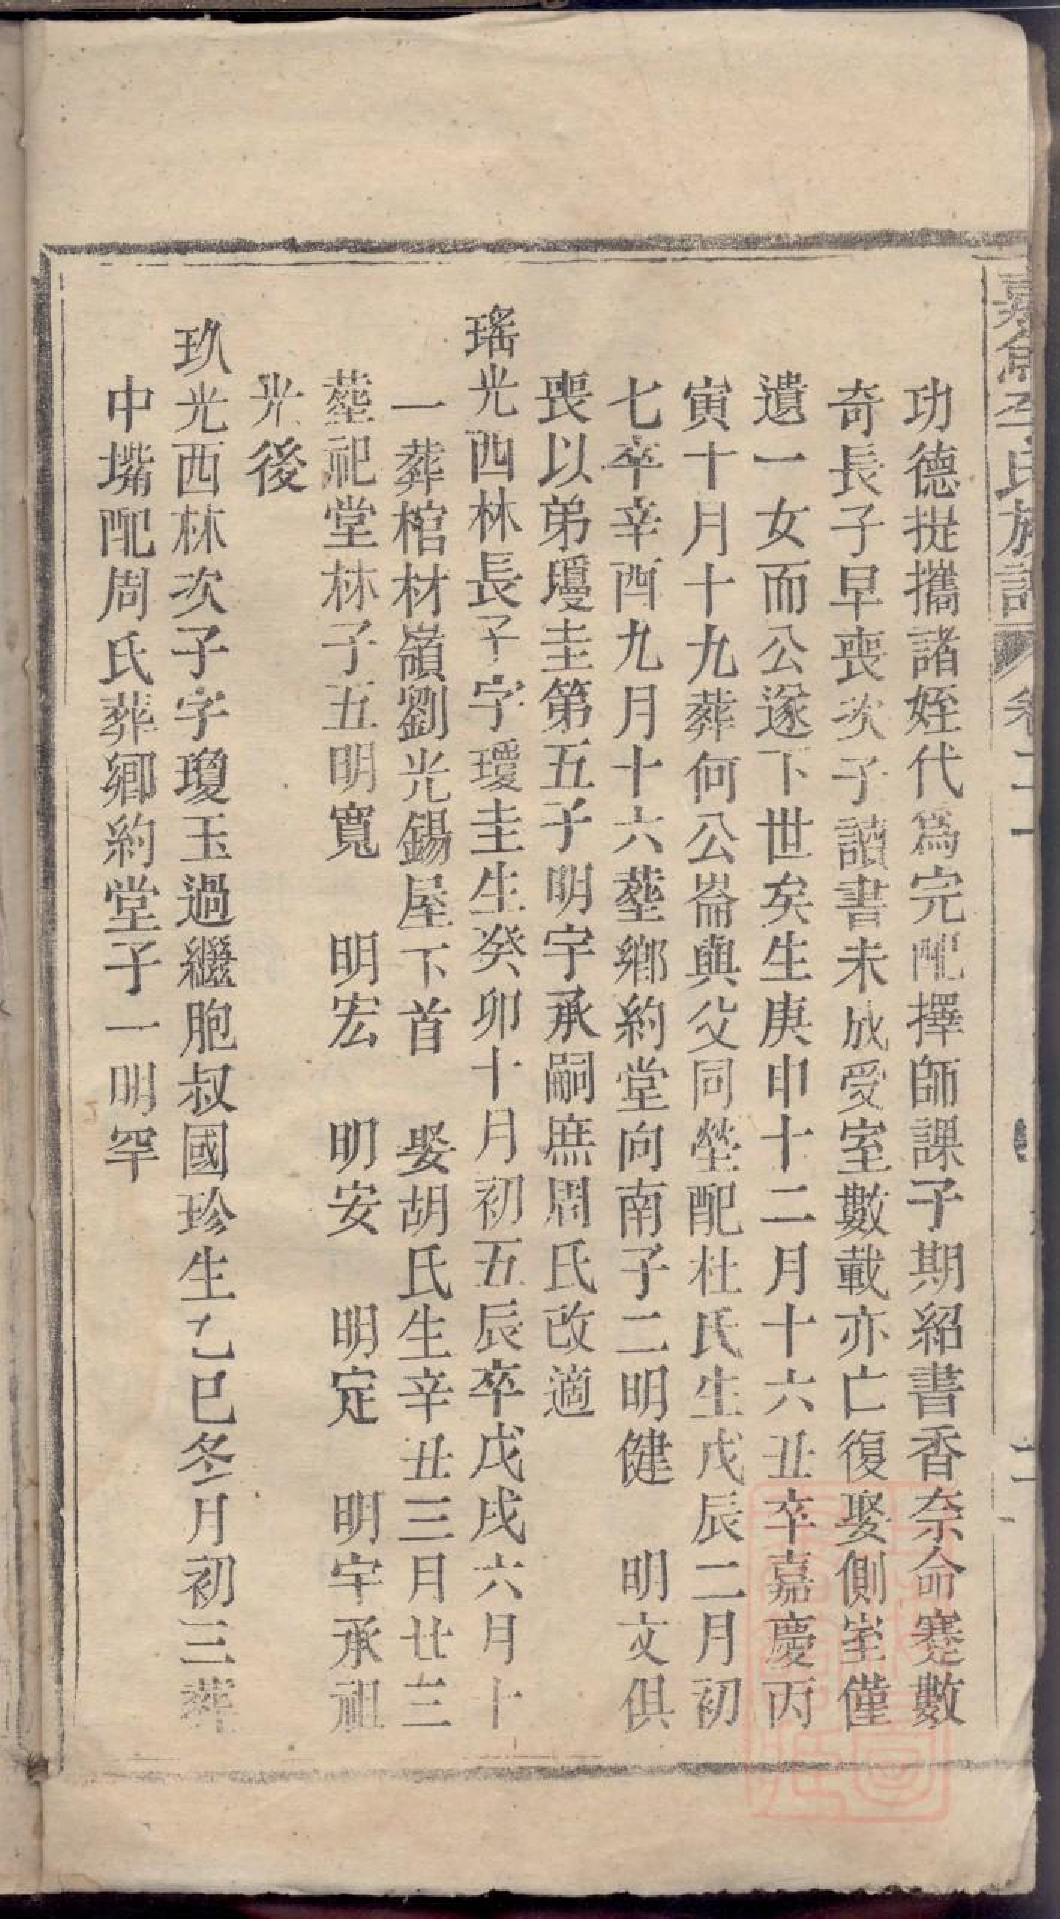 李氏族譜 卷二
功德提攜諸姪代為完配擇師課子期紹書香奈命蹇數
奇長子早喪次子讀書未成受室數載亦亡復娶側室僅
遺一女而公遂下世矣生庚申十二月十六丑卒嘉慶丙
寅十月十九葬何公崙與父同塋配杜氏生戊辰二月初
七卒辛酉九月十六塟鄉約堂向南子二明健 明文俱
喪以弟瓊圭第五子明宇承嗣庶周氏改適
瑤光西林長子字瓊圭生癸卯十月初五辰卒戊戌六月十
一葬棺材嶺劉光錫屋下首 娶胡氏生辛丑三月廿三
塟祀堂林子五明寬 明宏 明安 明定 明宇承祖
光後
玖光西林次子字瓊玉過繼胞叔國珍生乙巳冬月初三葬
中嘴配周氏葬鄉約堂子一明罕